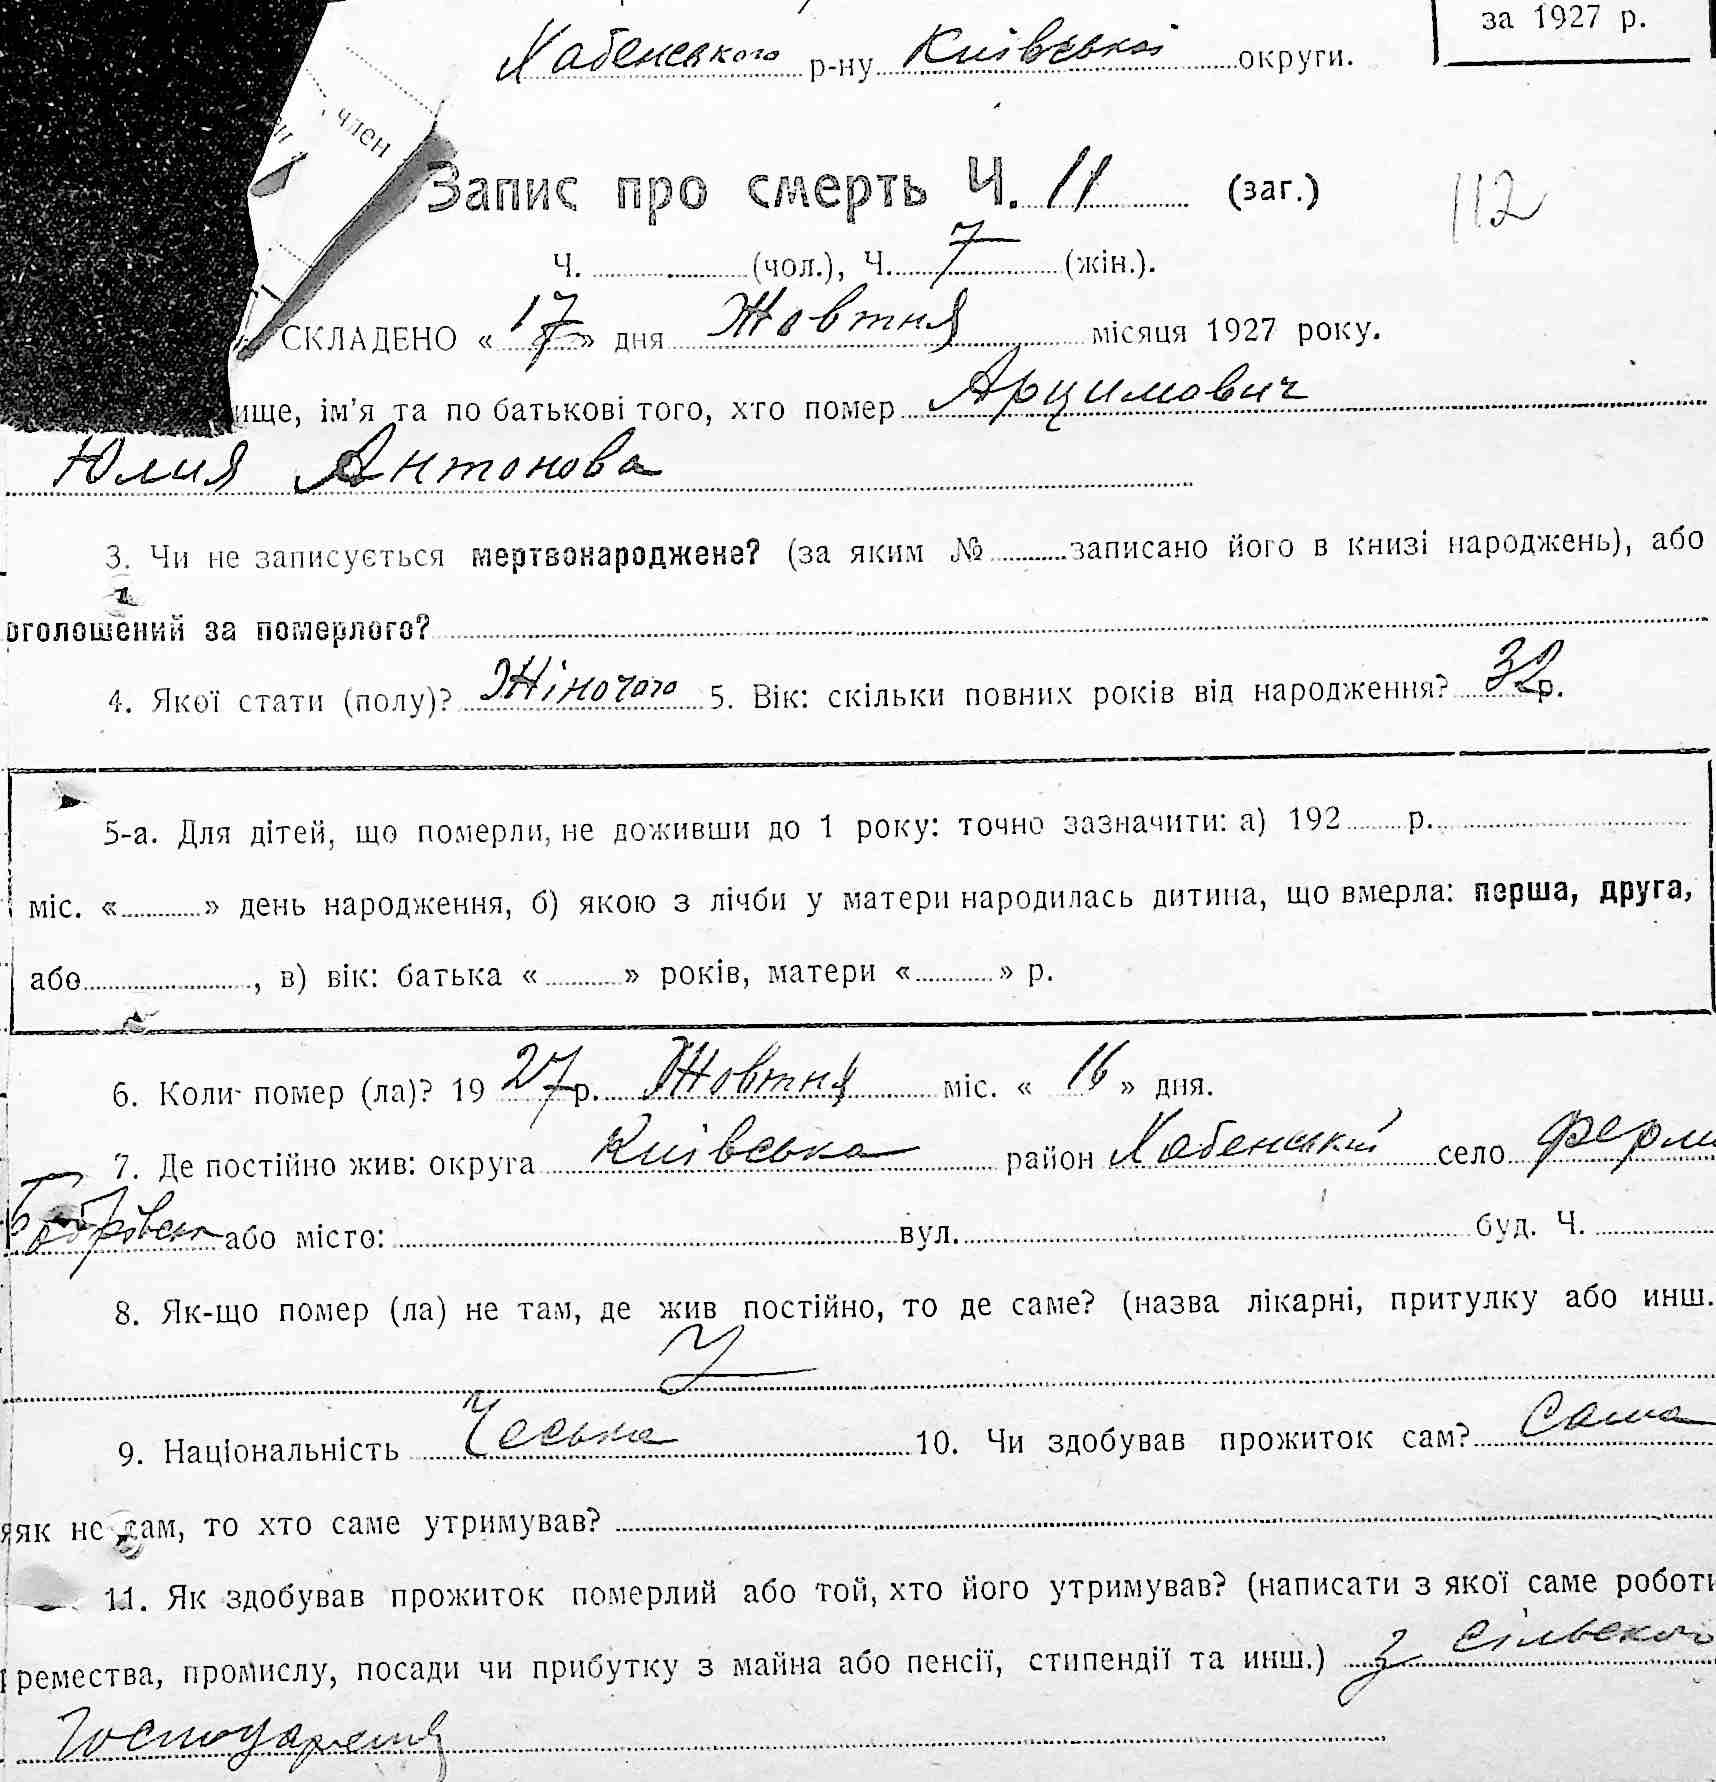 за 1927 р.
Хабенського р-ну Київської округи.
член
Запис про смерть Ч. 11 (заг.)
112
Ч. (чол.), Ч. 7 (жін.).
СКЛАДЕНО « 17 » дня Жовтня місяця 1927 року.
ище, ім'я та по батькові того, хто помер Арцимович
Юлия Антонова
3. Чи не записується мертвонароджене? (за яким № записано його в книзі народжень), або
оголошений за померлого?
4. Якої стати (полу)? Жіночого 5. Вік: скільки повних років від народження? 32 р.
5-а. Для дітей, що померли, не доживши до 1 року: точно зазначити: а) 192 р.
міс. « » день народження, б) якою з лічби у матери народилась дитина, що вмерла: перша, друга,
або , в) вік: батька « » років, матери « » р.
6. Коли помер (ла)? 19 27 р. Жовтня міс. « 16 » дня.
7. Де постійно жив: округа Київська район Хабенський село Ферм
або місто: вул. буд. Ч.
8. Як-що помер (ла) не там, де жив постійно, то де саме? (назва лікарні, притулку або инш.
9. Національність Чеська 10. Чи здобував прожиток сам? Сама
як не сам, то хто саме утримував?
11. Як здобував прожиток померлий або той, хто його утримував? (написати з якої саме роботи
ремества, промислу, посади чи прибутку з майна або пенсії, стипендії та инш.) З сільського
Господарства